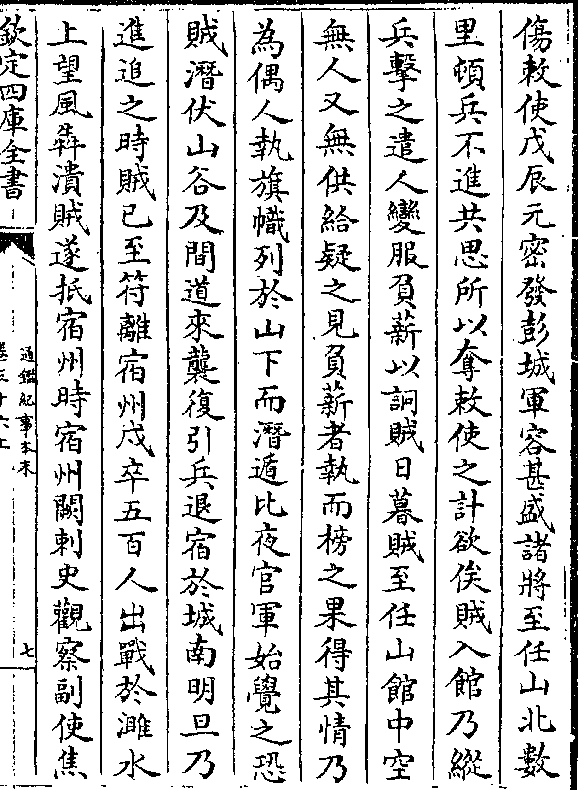 傷敕使戊辰元密發彭城軍容甚盛諸將至任山北數
里頓兵不進共思所以奪敕使之計欲俟賊入館乃縱
兵擊之遣人變服負薪以詗賊日暮賊至任山館中空
無人又無供給疑之見負薪者執而榜之果得其情乃
為偶人執旗幟列於山下而潛遁比夜官軍始覺之恐
賊潛伏山谷及間道來襲復引兵退宿於城南明旦乃
進追之時賊已至符離宿州戍卒五百人出戰於濉水
上望風犇潰賊遂抵宿州時宿州闕刺史觀察副使焦
欽定四庫全書
通鑑紀事本末
卷三十六上
七